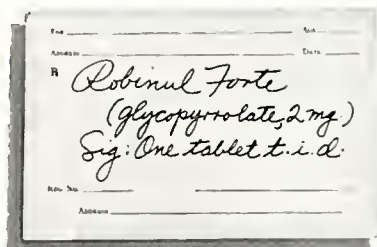 For Age
Address Date
℞ Robinul Forte
(glycopyrrolate, 2 mg.)
Sig: One tablet t.i.d.
Reg. No.
Address